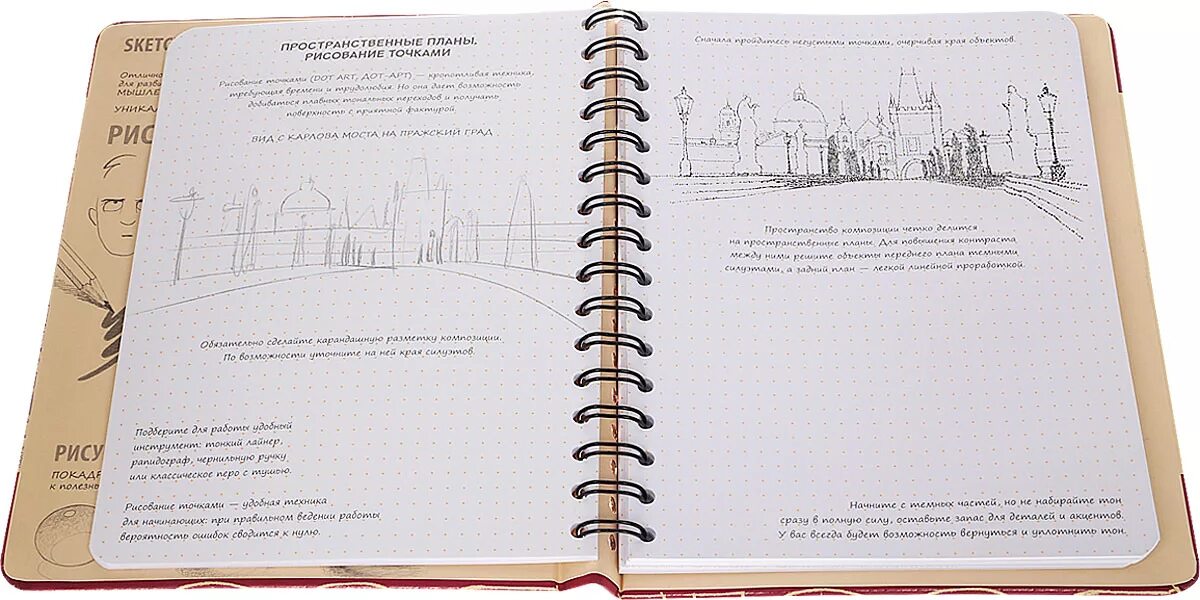 SKETC
Отлично
для разви
МЫШЛЕ
УНИКА
РИС
РИСУ
ПОКАДР
к полезны
ПРОСТРАНСТВЕННЫЕ ПЛАНЫ.
РИСОВАНИЕ ТОЧКАМИ
Рисование точками (DOT ART, ДОТ-АРТ) — кропотливая техника,
требующая времени и трудолюбия. Но она дает возможность
добиваться плавных тональных переходов и получать
поверхность с приятной фактурой.
ВИД С КАРЛОВА МОСТА НА ПРАЖСКИЙ ГРАД
Обязательно сделайте карандашную разметку композиции.
По возможности уточните на ней края силуэтов.
Подберите для работы удобный
инструмент: тонкий лайнер,
рапидограф, чернильную ручку
или классическое перо с тушью.
Рисование точками — удобная техника
для начинающих: при правильном ведении работы
вероятность ошибок сводится к нулю.
Сначала пройдитесь негустыми точками, очерчивая края объектов.
Пространство композиции четко делится
на пространственные планы. Для повышения контраста
между ними решите объекты переднего плана темными
силуэтами, а задний план — легкой линейной проработкой.
Начните с темных частей, но не набирайте тон
сразу в полную силу, оставьте запас для деталей и акцентов.
У вас всегда будет возможность вернуться и уплотнить тон.